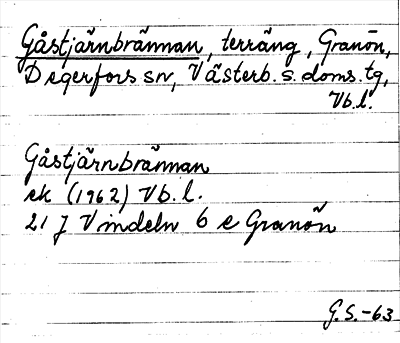 Gåstjärnbrännan, terräng, Granön,
Degerfors sn, Västerb. s. doms. tg,
Vb.l.
Gåstjärnbrännan
ek (1962) Vb.l.
21 J Vindeln 6 e Granön
G.S.-63